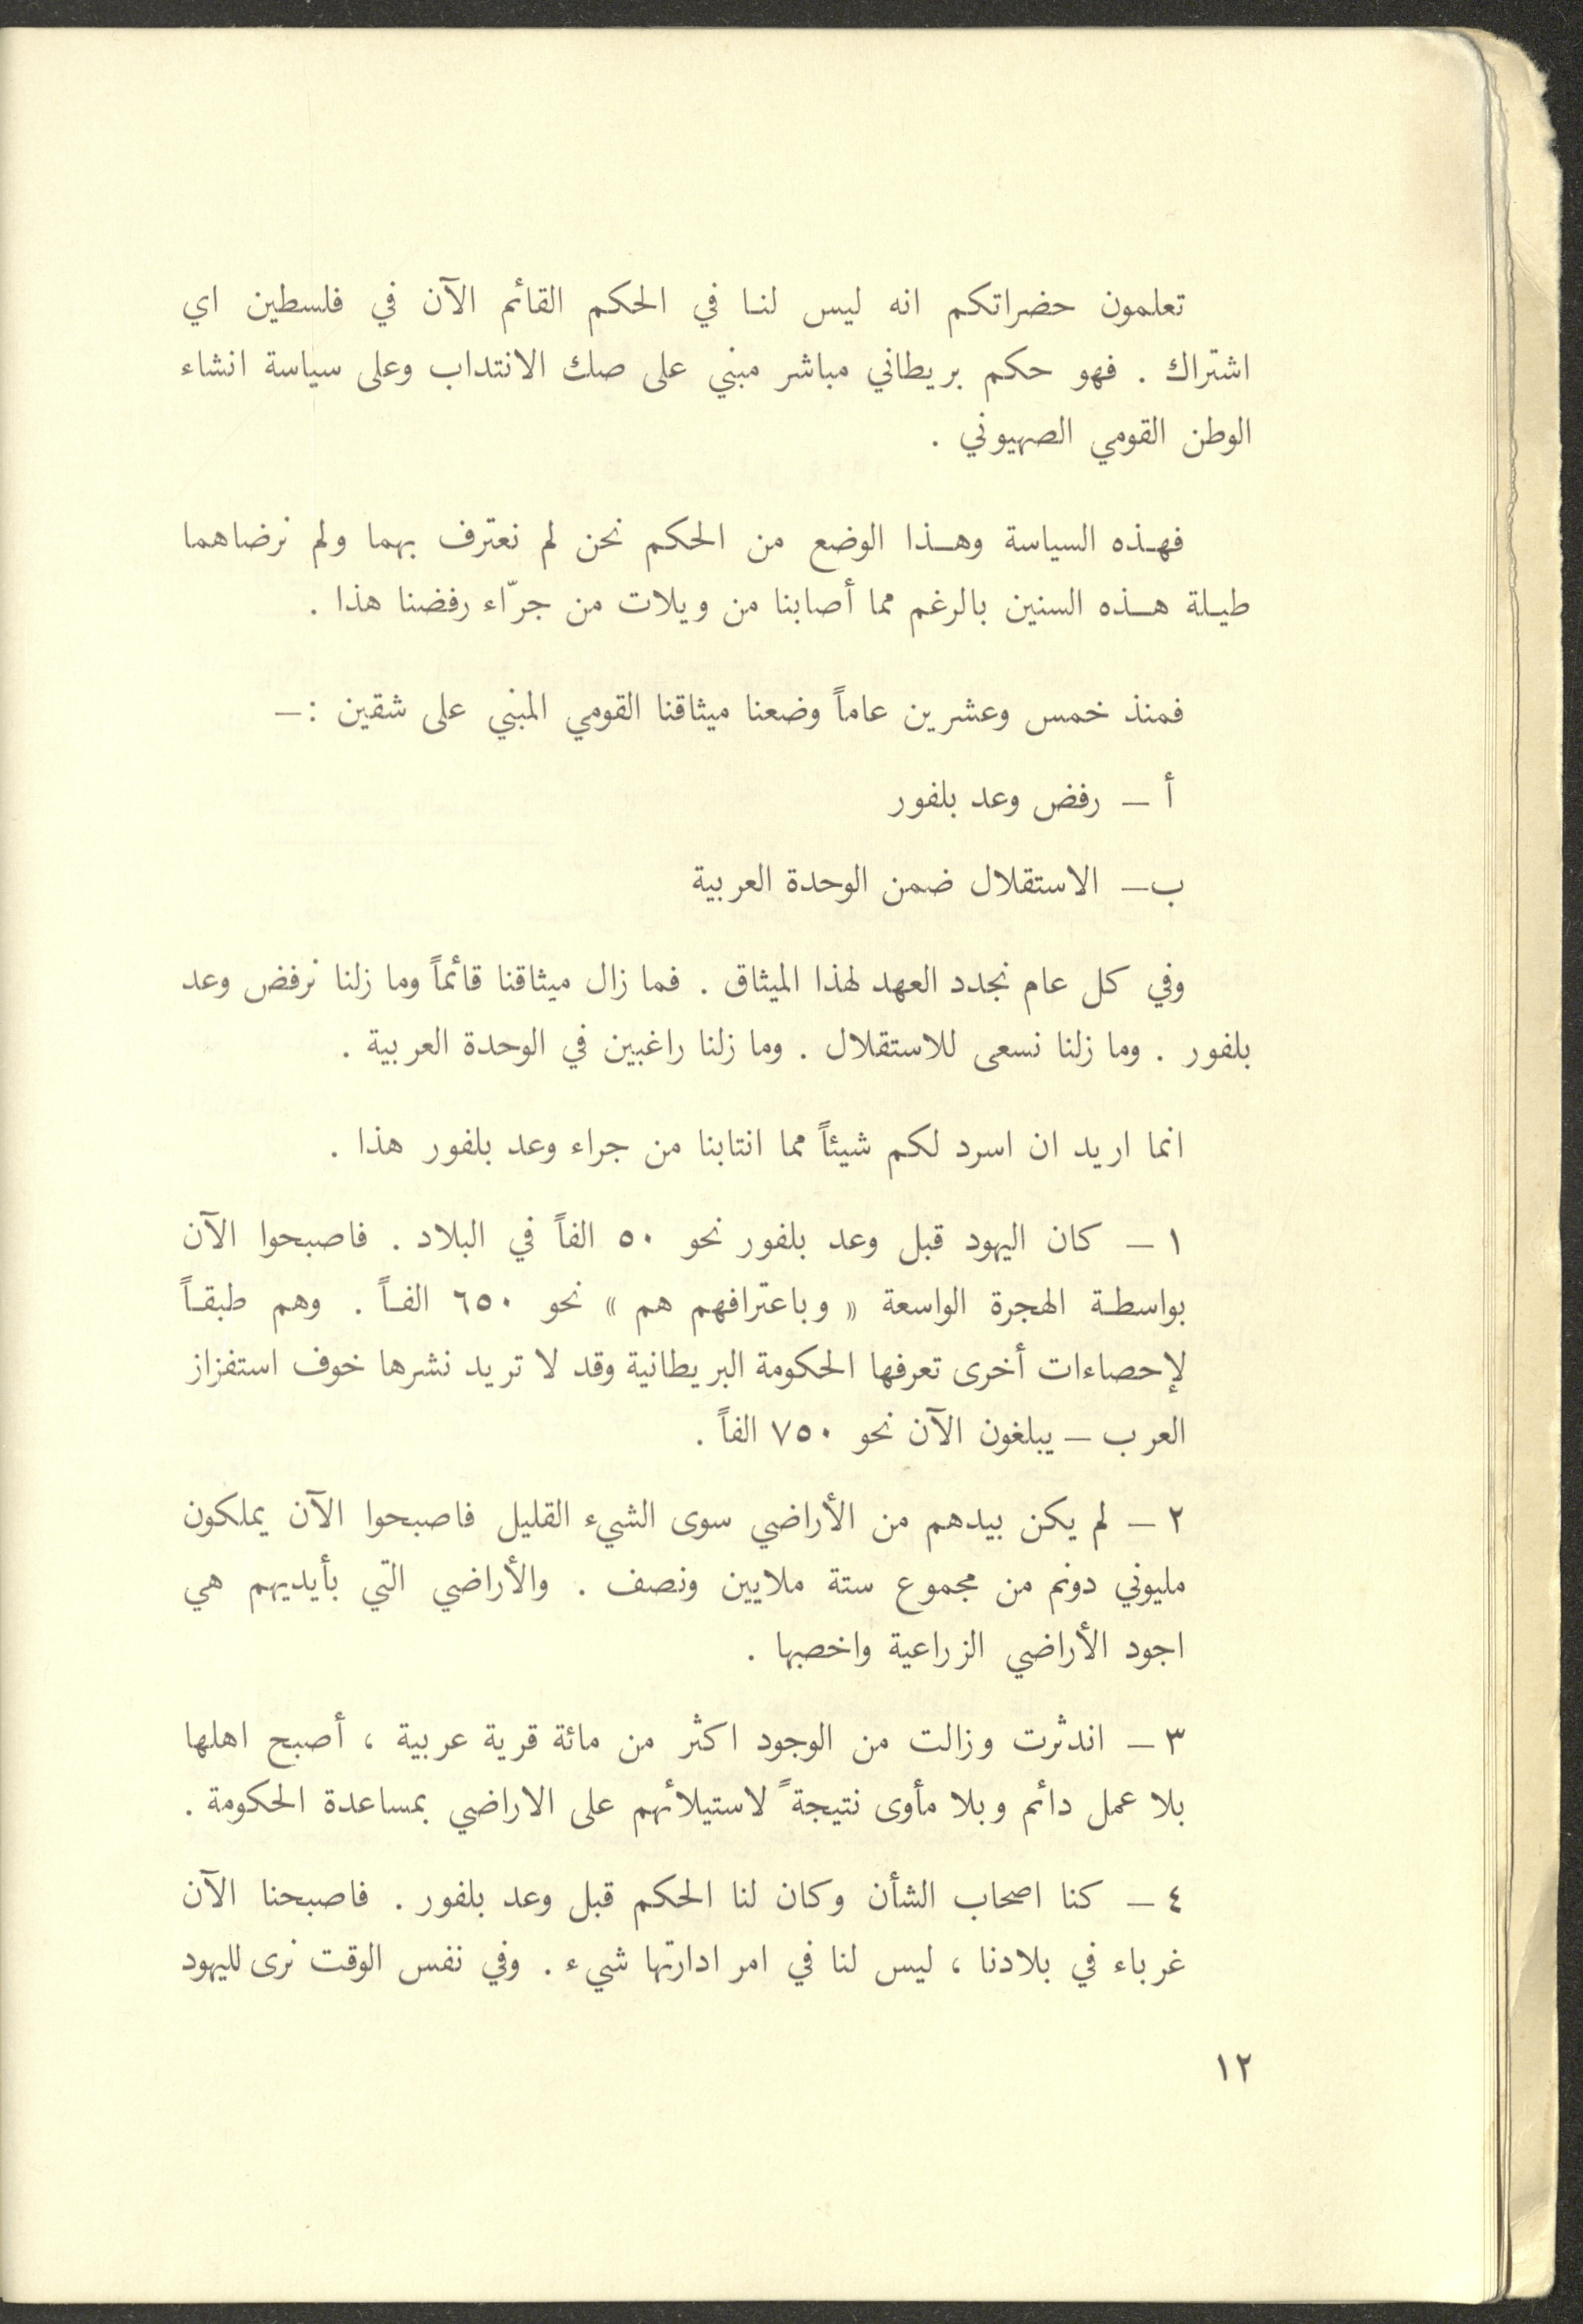 تعلمون حضراتكم انه ليس لنا في الحكم القائم الآن في فلسطين اي
اشتراك . فهو حكم بريطاني مباشر مبني على صك الانتداب وعلى سياسة انشاء
الوطن القومي الصهيوني .
فهذه السياسة وهذا الوضع من الحكم نحن لم نعترف بهما ولم نرضاهما
طيلة هذه السنين بالرغم مما أصابنا من ويلات من جرّاء رفضنا هذا .
فمنذ خمس وعشرين عاماً وضعنا ميثاقنا القومي المبني على شقين :ـ
أ ـ رفض وعد بلفور
ب ـ الاستقلال ضمن الوحدة العربية
وفي كل عام نجدد العهد لهذا الميثاق . فما زال ميثاقنا قائماً وما زلنا نرفض وعد
بلفور . وما زلنا نسعى للاستقلال . وما زلنا راغبين في الوحدة العربية .
انما اريد ان اسرد لكم شيئاً مما انتابنا من جراء وعد بلفور هذا .
١ ـ كان اليهود قبل وعد بلفور نحو ٥٠ الفاً في البلاد . فاصبحوا الآن
بواسطة الهجرة الواسعة « وباعترافهم هم » نحو ٦٥٠ الفاً . وهم طبقاً
لإحصاءات أخرى تعرفها الحكومة البريطانية وقد لا تريد نشرها خوف استفزاز
العرب ـ يبلغون الآن نحو ٧٥٠ الفاً .
٢ ـ لم يكن بيدهم من الأراضي سوى الشيء القليل فاصبحوا الآن يملكون
مليوني دونم من مجموع ستة ملايين ونصف . والأراضي التي بأيديهم هي
اجود الأراضي الزراعية واخصبها .
٣ ـ اندثرت وزالت من الوجود اكثر من مائة قرية عربية ، أصبح اهلها
بلا عمل دائم وبلا مأوى نتيجةً لاستيلائهم على الاراضي بمساعدة الحكومة .
٤ ـ كنا اصحاب الشأن وكان لنا الحكم قبل وعد بلفور . فاصبحنا الآن
غرباء في بلادنا ، ليس لنا في امر ادارتها شيء . وفي نفس الوقت نرى لليهود
١٢